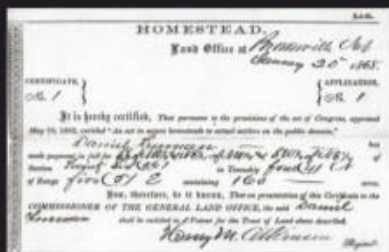 HOMESTEAD.
Land Office at Brownville Neb
January 20th 1868.
CERTIFICATE, No. 1
APPLICATION, No. 1
It is hereby certified, That pursuant to the provisions of the act of Congress, approved
May 20, 1862, entitled "An act to secure homesteads to actual settlers on the public domain,"
Daniel Freeman has
made payment in full for
Section in Township four (4) N
of Range five (5) E containing 160 acres.
Now, therefore, be it known, That on presentation of this Certificate to the
COMMISSIONER OF THE GENERAL LAND OFFICE, the said Daniel
Freeman shall be entitled to a Patent for the Tract of Land above described.
Henry M. Atkinson
Register.